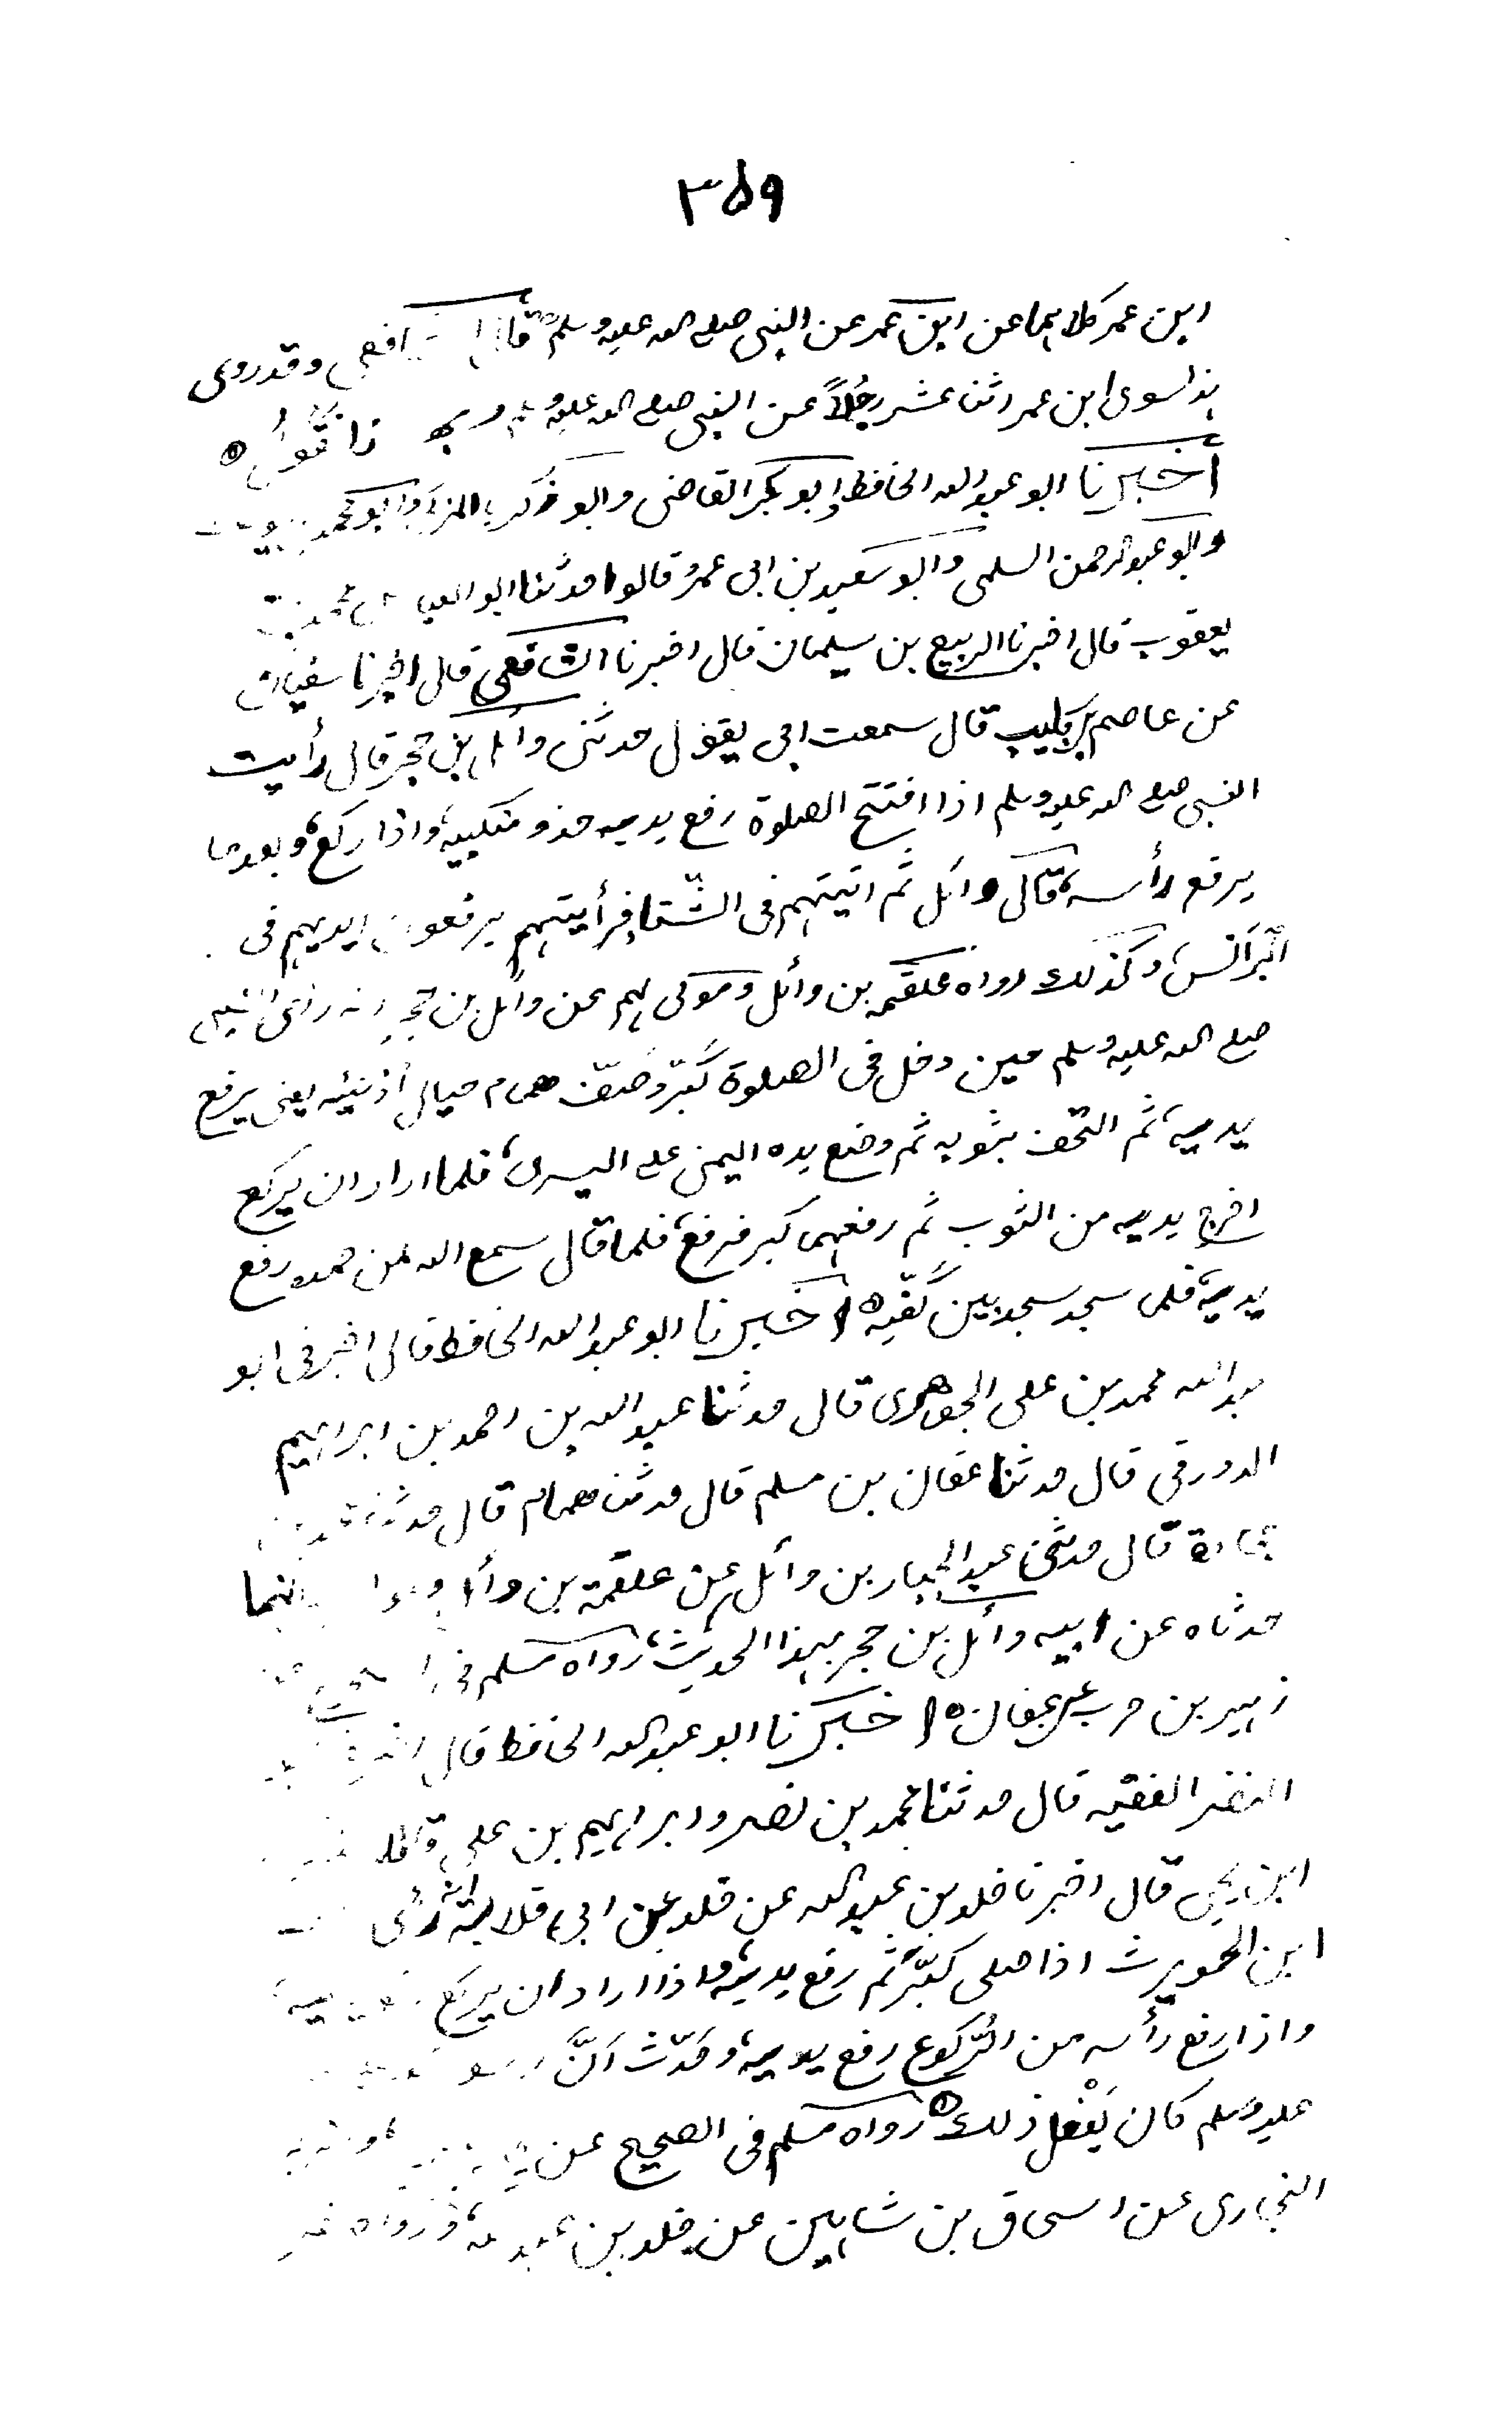 ٣٥٩
ابن عمر كلاهما عن ابن عمر عن النبي صلى الله عليه وسلم قال الشافعي وقد روى
هذا سوى ابن عمر اثنا عشر رجلاً عن النبي صلى الله عليه وسلم وبه نقول
أخبرنا ابو عبد الله الحافظ وابو بكر القاضى وابو زكريا المزكى وابو محمد بن يوسف
وابو عبد الرحمن السلمى وابو سعيد بن ابى عمرو قالوا حدثنا ابو العباس محمد بن
يعقوب قال اخبرنا الربيع بن سليمان قال اخبرنا الشافعى قال اخبرنا سفيان
عن عاصم بن كليب قال سمعت ابى يقول حدثنى وائل بن حجر قال رأيت
النبى صلى الله عليه وسلم اذا افتتح الصلوة رفع يديه حذو منكبيه، واذا ركع، وبعدما
يرفع رأسه، قال وائل ثم اتيتهم فى الشتاء فرأيتهم يرفعون ايديهم فى
البرانس، وكذلك رواه علقمة بن وائل ومولى لهم عن وائل بن حجر انه رأى النبى
صلى الله عليه وسلم حين دخل فى الصلوة كبّر وصفّ همام حيال أذنيه يعنى يرفع
يديه، ثم التحف بثوبه ثم وضع يده اليمنى على اليسرى، فلما اراد ان يركع
اخرج يديه من الثوب ثم رفعهما كبر فرفع، فلما قال سمع الله لمن حمده رفع
يديه، فلما سجد سجد بين كفّيه اخبرنا ابو عبد الله الحافظ قال اخبرنى ابو
عبد الله محمد بن على الجوهرى قال حدثنا عبد الله بن احمد بن ابراهيم
الدورقى قال حدثنا عفان بن مسلم قال حدثنا همام قال حدثنا محمد بن
جحادة قال حدثنى عبد الجبار بن وائل عن علقمة بن وائل ومولى انهما
حدثاه عن ابيه وائل بن حجر بهذا الحديث، رواه مسلم فى الصحيح عن
زهير بن حرب عن عفان اخبرنا ابو عبد الله الحافظ قال اخبرنى ابو
النضر الفقيه قال حدثنا محمد بن نصر وابراهيم بن على قالا
ابن يحيى قال اخبرنا خلد بن عبد الله عن خلد عن ابى قلابة انه رأى
ابن الحويرث اذا صلى كبّر ثم رفع يديه، واذا اراد ان يركع رفع يديه
واذا رفع رأسه من الرّكوع رفع يديه، وحدّث أنّ رسول
عليه وسلم كان يفعل ذلك رواه مسلم فى الصحيح عن
البخارى عن اسحاق بن شاهين عن خلد بن عبد الله، ورواه